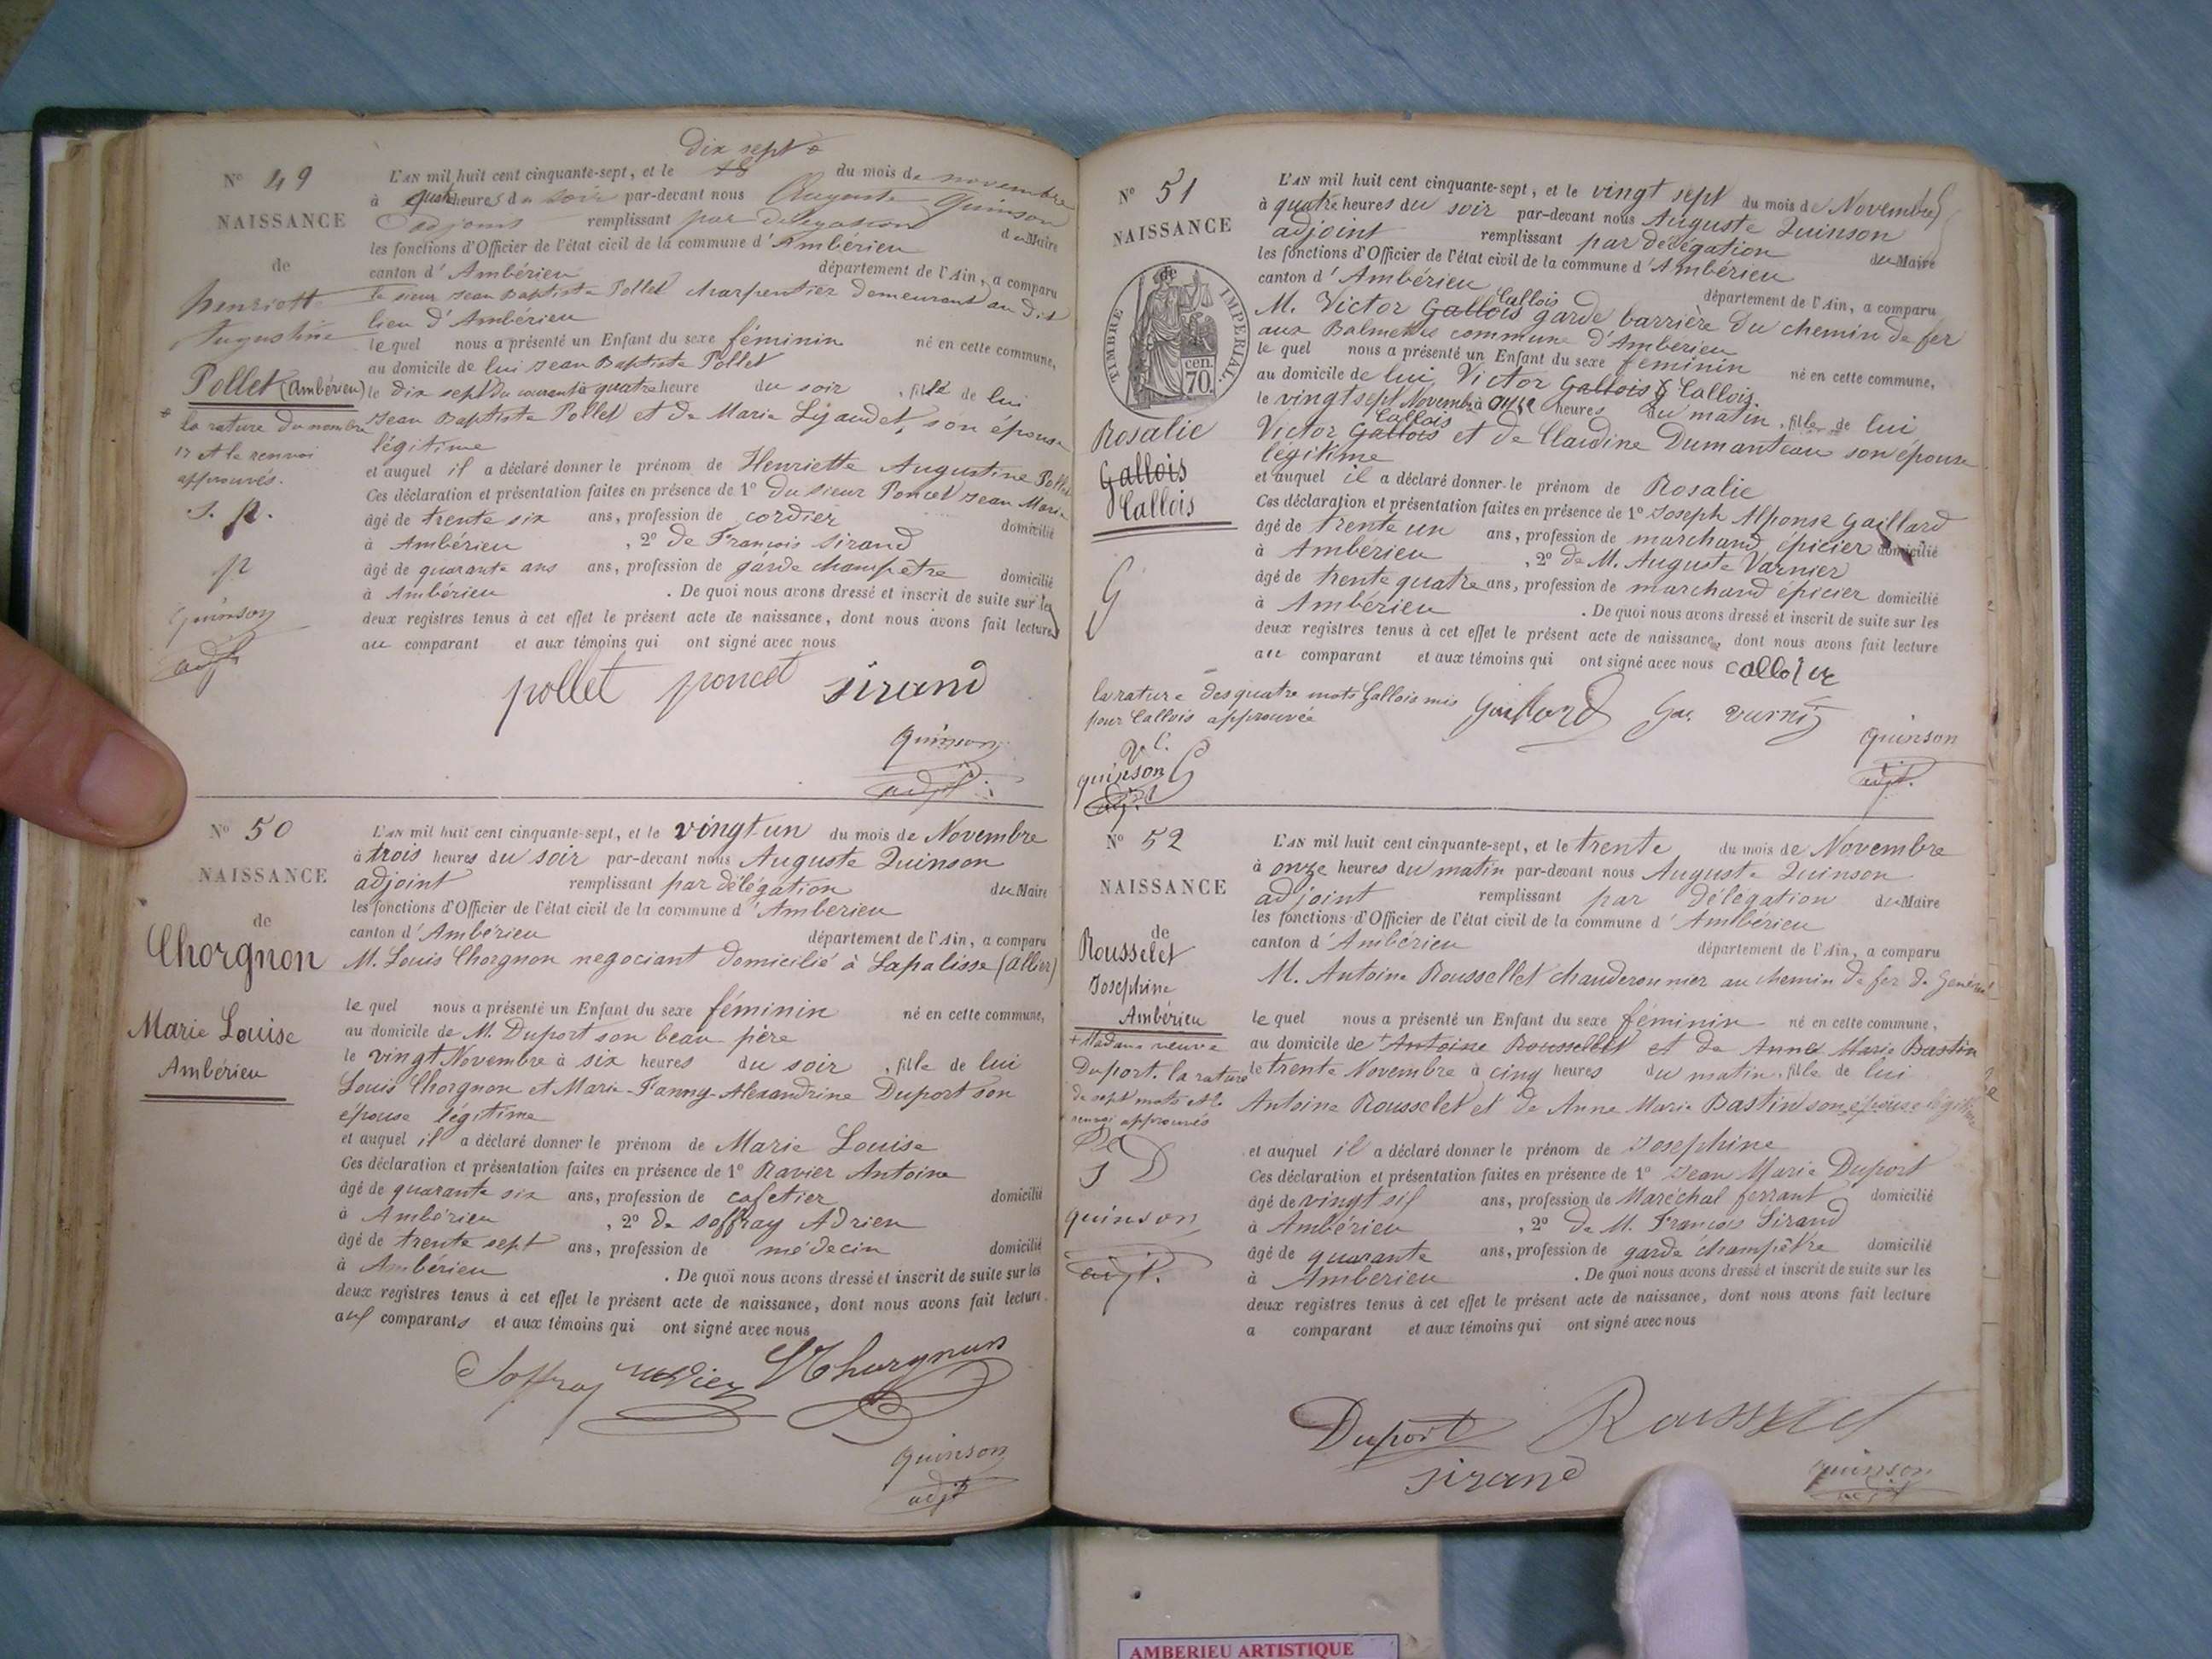 N° 49
NAISSANCE
de
henriett
Augustine
Pollet (Ambérieu)
la rature du nombre
17 et le renvoi
approuvés.
J. p.
p
Quinson
adjt
dix sept
L'AN mil huit cent cinquante-sept, et le 18 du mois de novembre
à quatre heures du soir par-devant nous Auguste Quinson
adjoint remplissant par délégation du Maire
les fonctions d'Officier de l'état civil de la commune d'Ambérieu
canton d'Ambérieu département de l'Ain, a comparu
le sieur Jean Baptiste Pollet charpentier demeurant au dit
lieu d'Ambérieu
le quel nous a présenté un Enfant du sexe féminin né en cette commune,
au domicile de lui Jean Baptiste Pollet
le dix sept du courant à quatre heure du soir, fille de lui
Jean Baptiste Pollet et de Marie Lyaudet, son épouse
légitime
et auquel il a déclaré donner le prénom de Henriette Augustine Pollet
Ces déclaration et présentation faites en présence de 1° du sieur Poncet Jean Marie
âgé de trente six ans, profession de cordier domicilié
à Ambérieu, 2° de François Sirand
âgé de quarante ans ans, profession de garde champêtre domicilié
à Ambérieu . De quoi nous avons dressé et inscrit de suite sur les
deux registres tenus à cet effet le présent acte de naissance, dont nous avons fait lecture
au comparant et aux témoins qui ont signé avec nous
pollet poncet sirand
Quinson
adjt
N° 50
NAISSANCE
de
Chorgnon
Marie Louise
Ambérieu
L'AN mil huit cent cinquante-sept, et le vingt un du mois de Novembre
à trois heures du soir par-devant nous Auguste Quinson
adjoint remplissant par délégation du Maire
les fonctions d'Officier de l'état civil de la commune d'Ambérieu
canton d'Ambérieu département de l'Ain, a comparu
M. Louis Chorgnon negociant domicilié à Lapalisse (Allier)
le quel nous a présenté un Enfant du sexe féminin né en cette commune,
au domicile de M. Duport son beau père
le vingt Novembre à six heures du soir, fille de lui
Louis Chorgnon et Marie-Fanny-Alexandrine Duport son
épouse légitime
et auquel il a déclaré donner le prénom de Marie Louise
Ces déclaration et présentation faites en présence de 1° Ravier Antoine
âgé de quarante six ans, profession de cafetier domicilié
à Ambérieu, 2° de Soffray Adrien
âgé de trente sept ans, profession de médecin domicilié
à Ambérieu . De quoi nous avons dressé et inscrit de suite sur les
deux registres tenus à cet effet le présent acte de naissance, dont nous avons fait lecture
aux comparants et aux témoins qui ont signé avec nous
Soffray ravier Chorgnon
Quinson
adjt
N° 51
NAISSANCE
de
TIMBRE IMPERIAL.
70 cen.
Rosalie
Gallois
Callois
G
L'AN mil huit cent cinquante-sept, et le vingt sept du mois de Novembre
à quatre heures du soir par-devant nous Auguste Quinson
adjoint remplissant par délégation du Maire
les fonctions d'Officier de l'état civil de la commune d'Ambérieu
canton d'Ambérieu département de l'Ain, a comparu
M. Victor Gallois Callois garde barrière du chemin de fer
aux Balmettes commune d'Ambérieu
le quel nous a présenté un Enfant du sexe féminin né en cette commune,
au domicile de lui Victor Gallois Callois.
le vingt sept Novembre à onze heures du matin, fille de lui
Victor Gallois Callois et de Claudine Dumanteau son épouse
légitime
et auquel il a déclaré donner le prénom de Rosalie
Ces déclaration et présentation faites en présence de 1° Joseph Alponse Gaillard
âgé de trente un ans, profession de marchand épicier domicilié
à Ambérieu, 2° de M. Auguste Varnier
âgé de trente quatre ans, profession de marchand épicier domicilié
à Ambérieu . De quoi nous avons dressé et inscrit de suite sur les
deux registres tenus à cet effet le présent acte de naissance, dont nous avons fait lecture
au comparant et aux témoins qui ont signé avec nous
la rature des quatre mots Gallois mis
pour Callois approuvée
V. C.
G
quinson
adjt
Gaillard
Quinson
adjt.
N° 52
NAISSANCE
de
Rousselet
Josephine
Ambérieu
+ Madame veuve
Duport. la rature
de sept mots et le
renvoi approuvés
J D
quinson
adjt.
L'AN mil huit cent cinquante-sept, et le trente du mois de Novembre
à onze heures du matin par-devant nous Auguste Quinson
adjoint remplissant par délégation du Maire
les fonctions d'Officier de l'état civil de la commune d'Ambérieu
canton d'Ambérieu département de l'Ain, a comparu
M. Antoine Roussellet chauderonnier au chemin de fer de Genève
le quel nous a présenté un Enfant du sexe féminin né en cette commune,
au domicile de + Antoine Rousselet et de Anne Marie Bastin
le trente Novembre à cinq heures du matin, fille de lui
Antoine Rousselet et de Anne Marie Bastin son épouse légitime
et auquel il a déclaré donner le prénom de Josephine
Ces déclaration et présentation faites en présence de 1° Jean Marie Duport
âgé de vingt six ans, profession de Maréchal ferrant domicilié
à Ambérieu, 2° de M. François Sirand
âgé de quarante ans, profession de garde champêtre domicilié
à Ambérieu . De quoi nous avons dressé et inscrit de suite sur les
deux registres tenus à cet effet le présent acte de naissance, dont nous avons fait lecture
a comparant et aux témoins qui ont signé avec nous
Duport Rousselet
sirand
quinson
adjt
AMBERIEU ARTISTIQUE